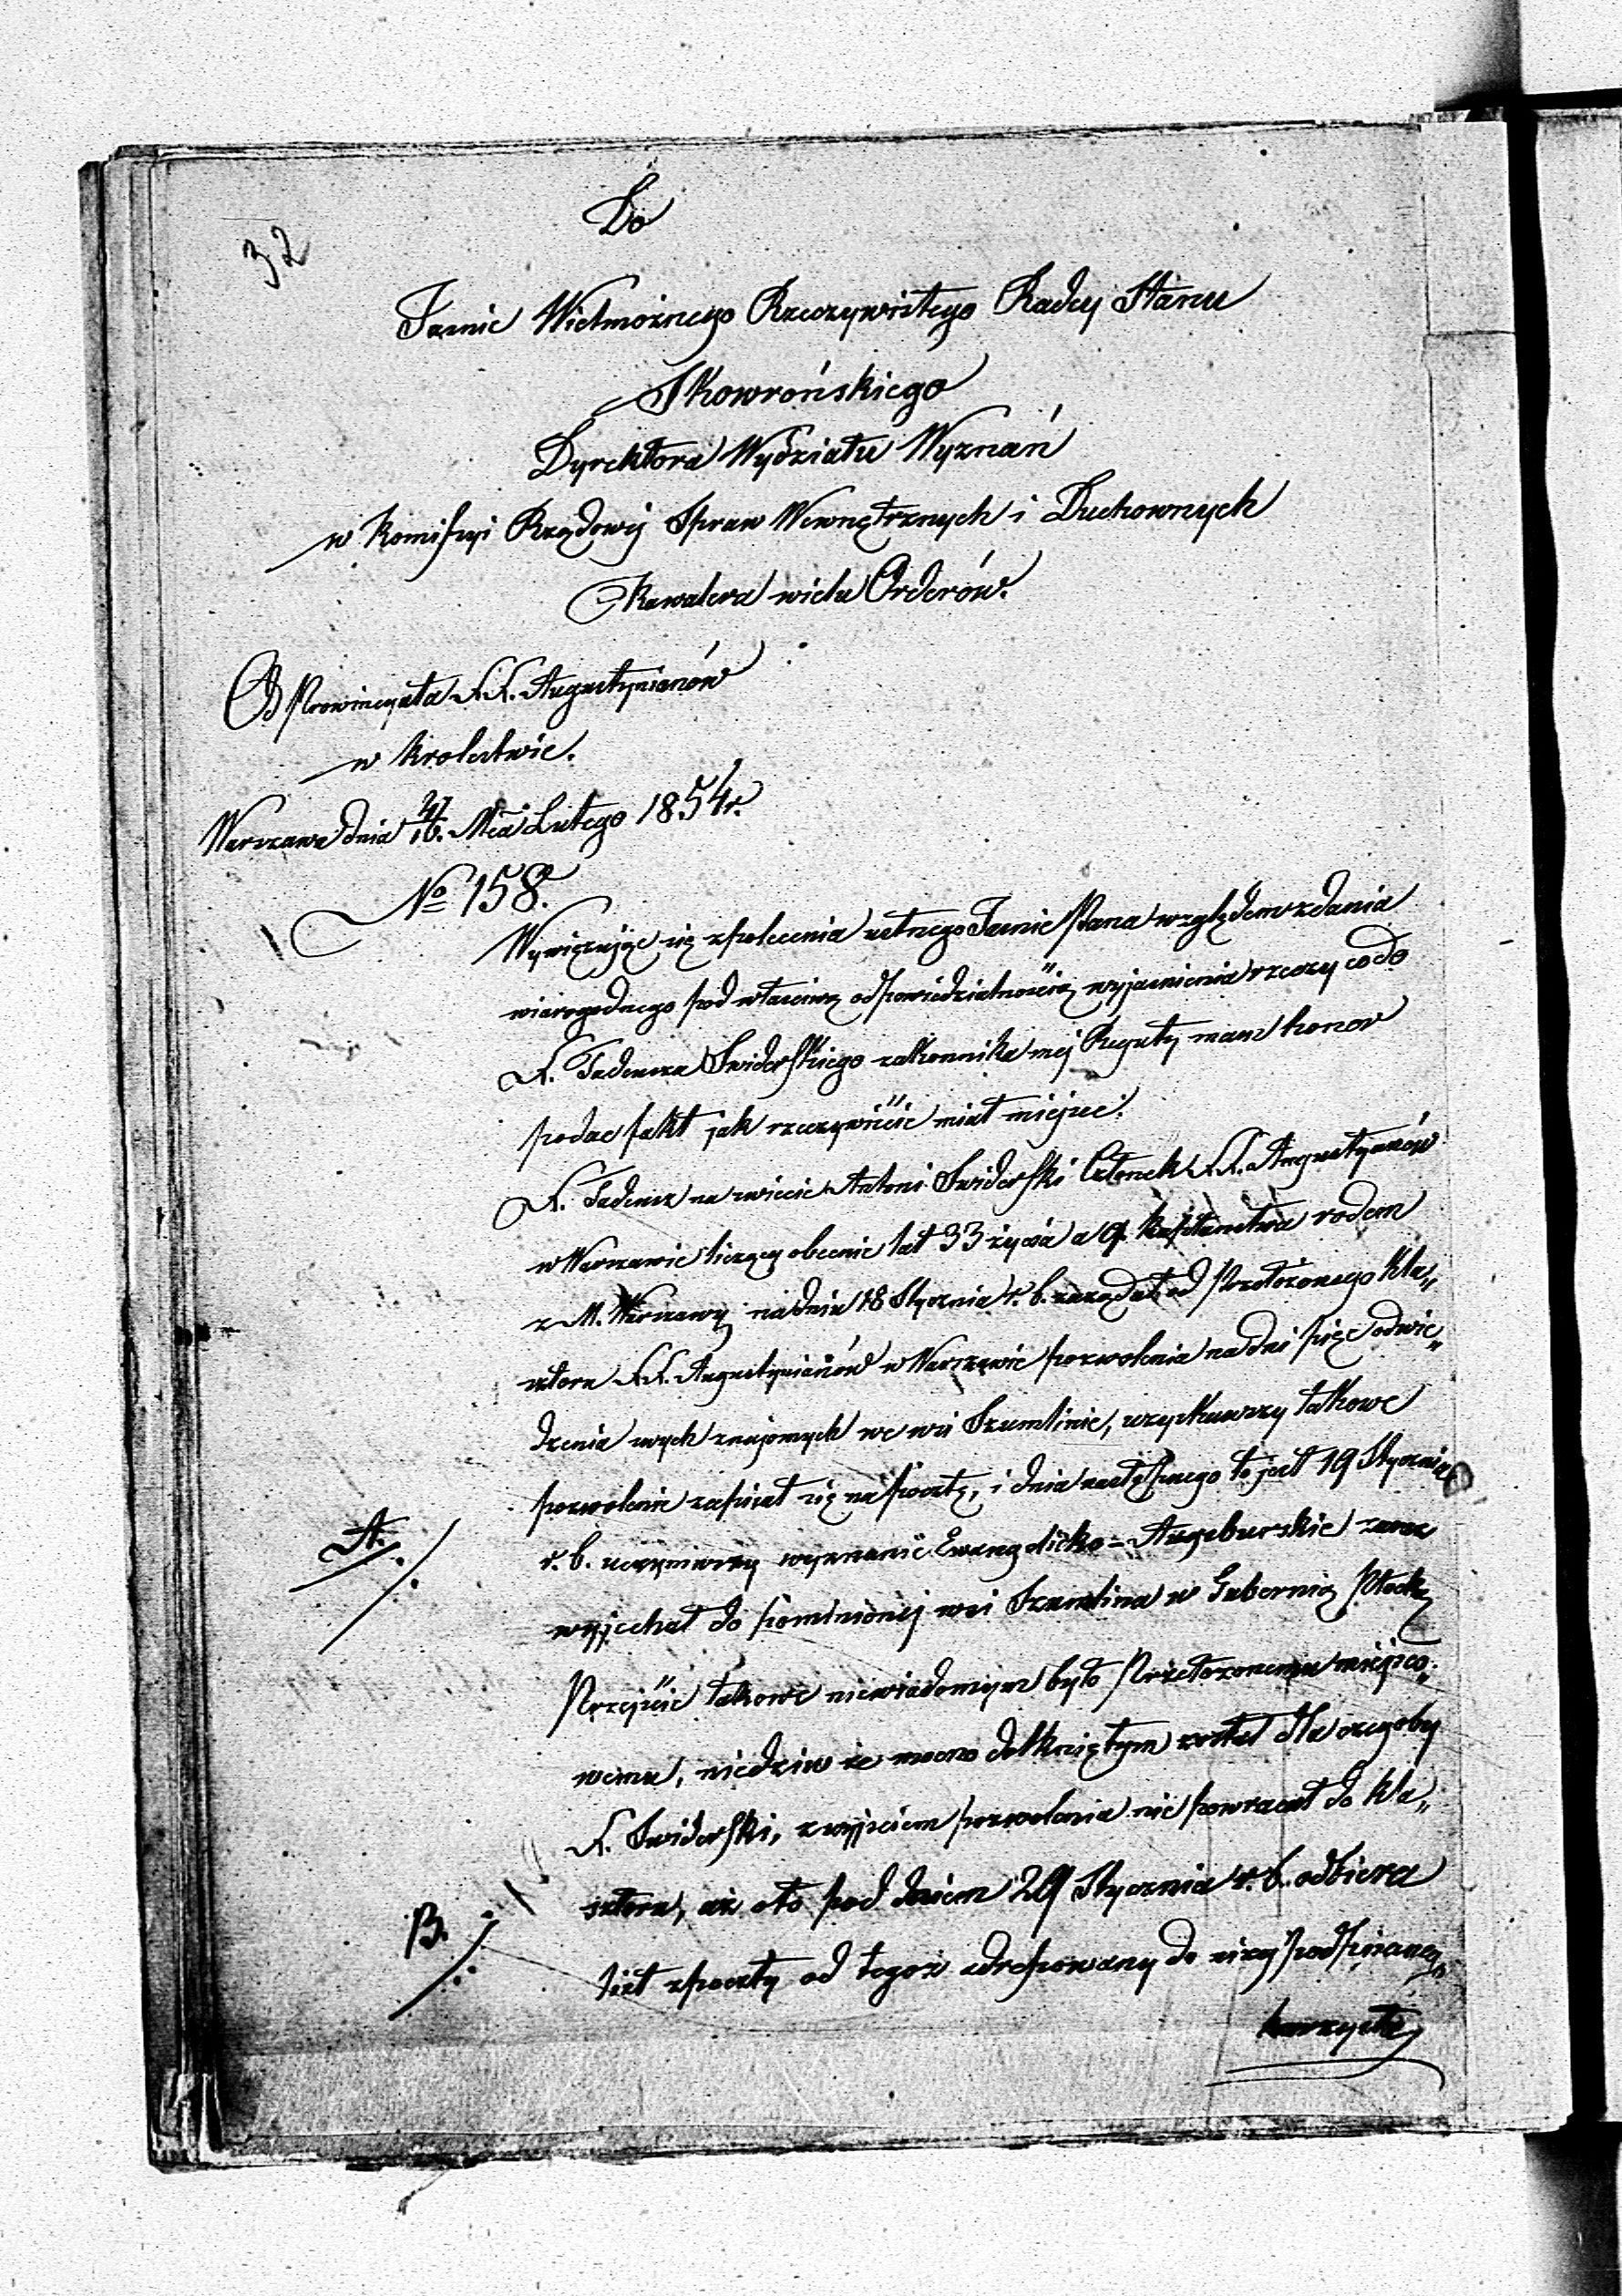 32
Do
Jaśnie Wielmożnego Rzeczywistego Radcy Stanu
Skowrońskiego
Dyrektora Wydziału Wyznań
w Komissyi Rządowéj Spraw Wewnętrznych i Duchownych
Kawalera wielu Orderów.
Od Prowincyała XX. Augustyianów
w Królestwie.
Warszawa dnia 16. Mca Lutego 1854 r.
No 158.
Wywięzując się z polecenia ustnego Jaśnie Pana względem zdania
wiarogodnego pod właściwą odpowiedzialnością wyjaśnienia rzeczy co do
X. Tadeusza Swiderskiego zakonnika méj Reguły mam honor
podac fakt jak rzeczywiście miał miejsce.
X. Tadeusz na swiecie Antoni Swiderski Członek XX. Augustyanów
w Warszawie liczący obecnie lat 33 życia a 9. kapłaństwa rodem
z M. Warszawy na dniu 18 Stycznia r. b. zażądał od Przełożonego Kla„
sztoru XX. Augustyianów w Warszawie pozwolenia na dni pięć odwie„
dzenia swych znajomych we wsi Szumlinie, uzyskawszy takowe
pozwolenie zapisał się na pocztę, i dnia następnego to jest 19 Stycznia
A. r. b. uczyniwszy wyznanie Ewangelicko = Augsburskie zaraz
wyjechał do pomienionéj wsi Szumlina w Gubernią Płocką
Przejście takowe niewiadomym było Przełożonemu miejsco„
wemu, niedziw że mocno dotkniętym został dla czegoby
X. Swiderski, z wyjściem pozwolenia nie powracał do Kla„
sztoru, aż oto pod dniem 29 Stycznia r. b. odbiera
B. list z poczty od tegoż adresowany do niżéj podpisanego